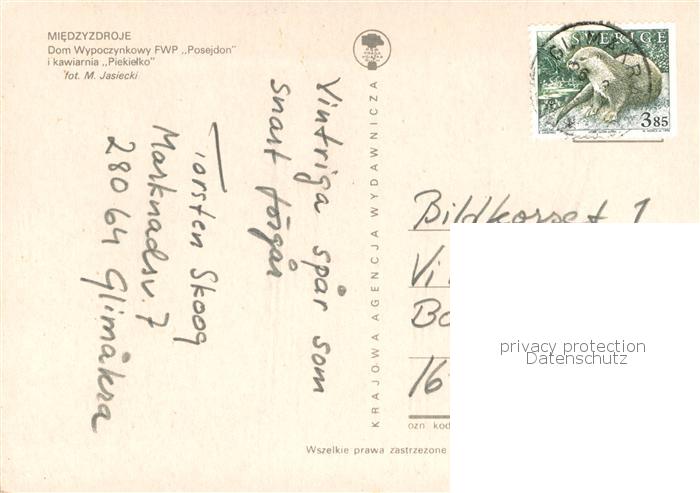 MIĘDZYZDROJE
Dom Wypoczynkowy FWP „Posejdon"
i kawiarnia „Piekiełko"
fot. M. Jasiecki
Vintriga spår som
snart förgår
Torsten Skoog
Marknadsv. 7
280 64 Glimåkra
KRAJOWA AGENCJA WYDAWNICZA
SVERIGE
3.85
Bildkorset 1
Vi
Bo
16
ozn kod
Wszelkie prawa zastrzeżone
privacy protection
Datenschutz